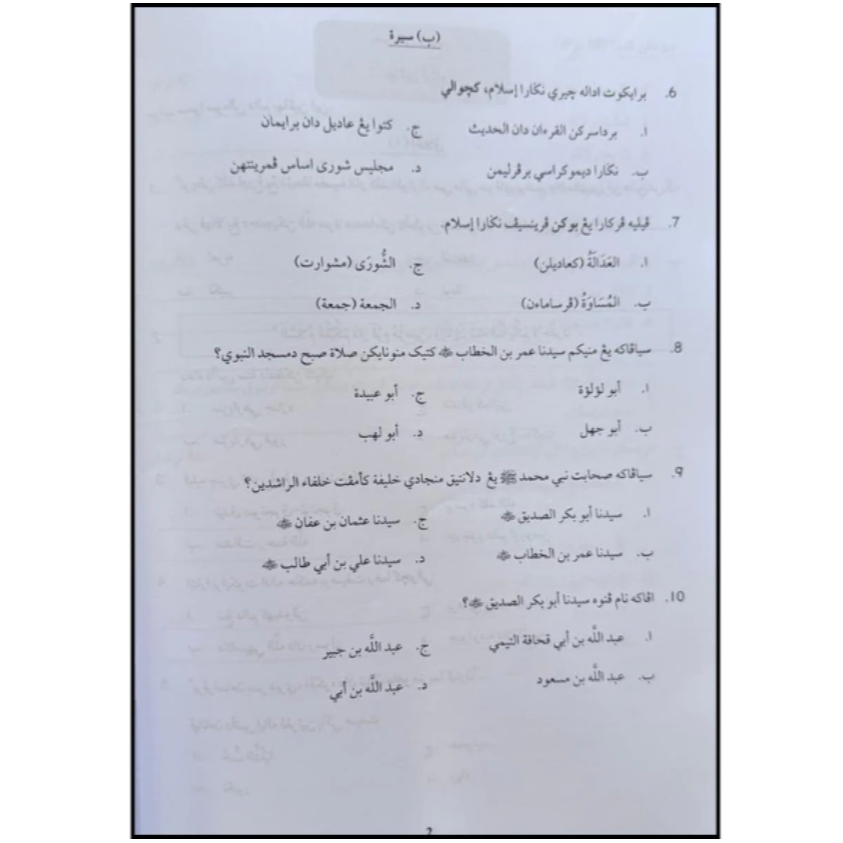 (ب) سيرة
6. برايكوت اداله چيري نڬارا إسلام، كچوالي
ا. برداسركن القرءان دان الحديث ج. كتوا يڠ عاديل دان برايمان
ب. نڬارا ديموكراسي برڤرليمن د. مجليس شورى اساس ڤمرينتهن
7. ڤيليه ڤركارا يڠ بوكن ڤرينسيڤ نڬارا إسلام.
ا. العَدَالَةُ (كعاديلن) ج. الشُّورَى (مشوارت)
ب. المُسَاوَةُ (ڤرساماءن) د. الجمعة (جمعة)
8. سياڤاكه يڠ منيكم سيدنا عمر بن الخطاب ﵁ كتيك منونايكن صلاة صبح دمسجد النبوي؟
ا. أبو لؤلؤة ج. أبو عبيدة
ب. أبو جهل د. أبو لهب
9. سياڤاكه صحابت نبي محمد ﷺ يڠ دلانتيق منجادي خليفة كأمڤت خلفاء الراشدين؟
ا. سيدنا أبو بكر الصديق ﵁ ج. سيدنا عثمان بن عفان ﵁
ب. سيدنا عمر بن الخطاب ﵁ د. سيدنا علي بن أبي طالب ﵁
10. اڤاكه نام ڤنوه سيدنا أبو بكر الصديق ﵁؟
ا. عبد اللَّه بن أبي قحافة التيمي ج. عبد اللَّه بن جبير
ب. عبد اللَّه بن مسعود د. عبد اللَّه بن أبي
2